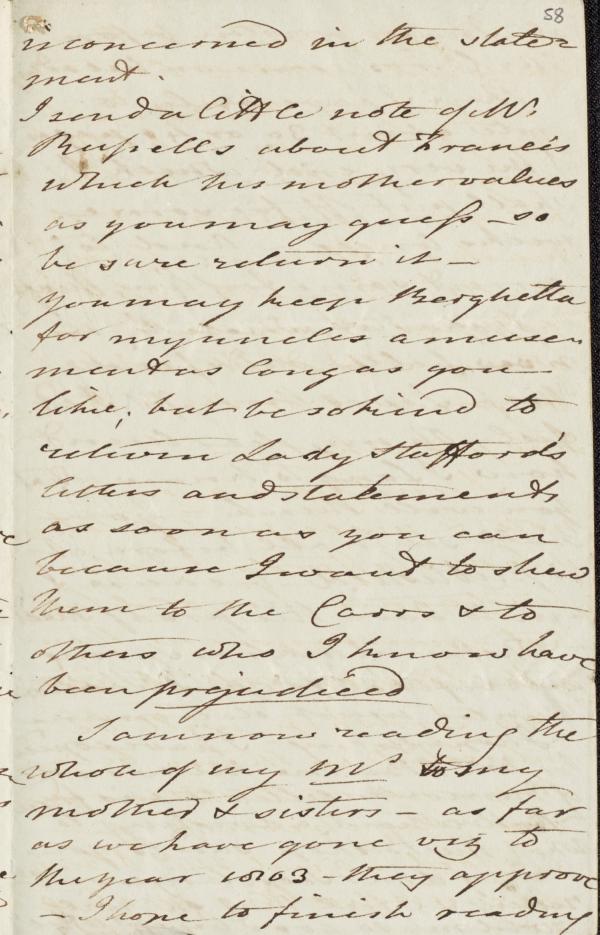 58
unconcerned in the state=
ment.
I send a little note of Mr.
Russells about Francis
which his mother values
as you may guess – so
be sure return it –
you may keep Barghetta
for my uncles amuse=
ment as long as you
like; but be so kind to
return Lady Stafford's
letters and statements
as soon as you can
because I want to shew
them to the Carrs & to
others who I know have
been prejudiced
I am now reading the
whole of my MS to my
mother & sisters – as far
as we have gone viz to
the year 1803 – they approve
– I hope to finish reading